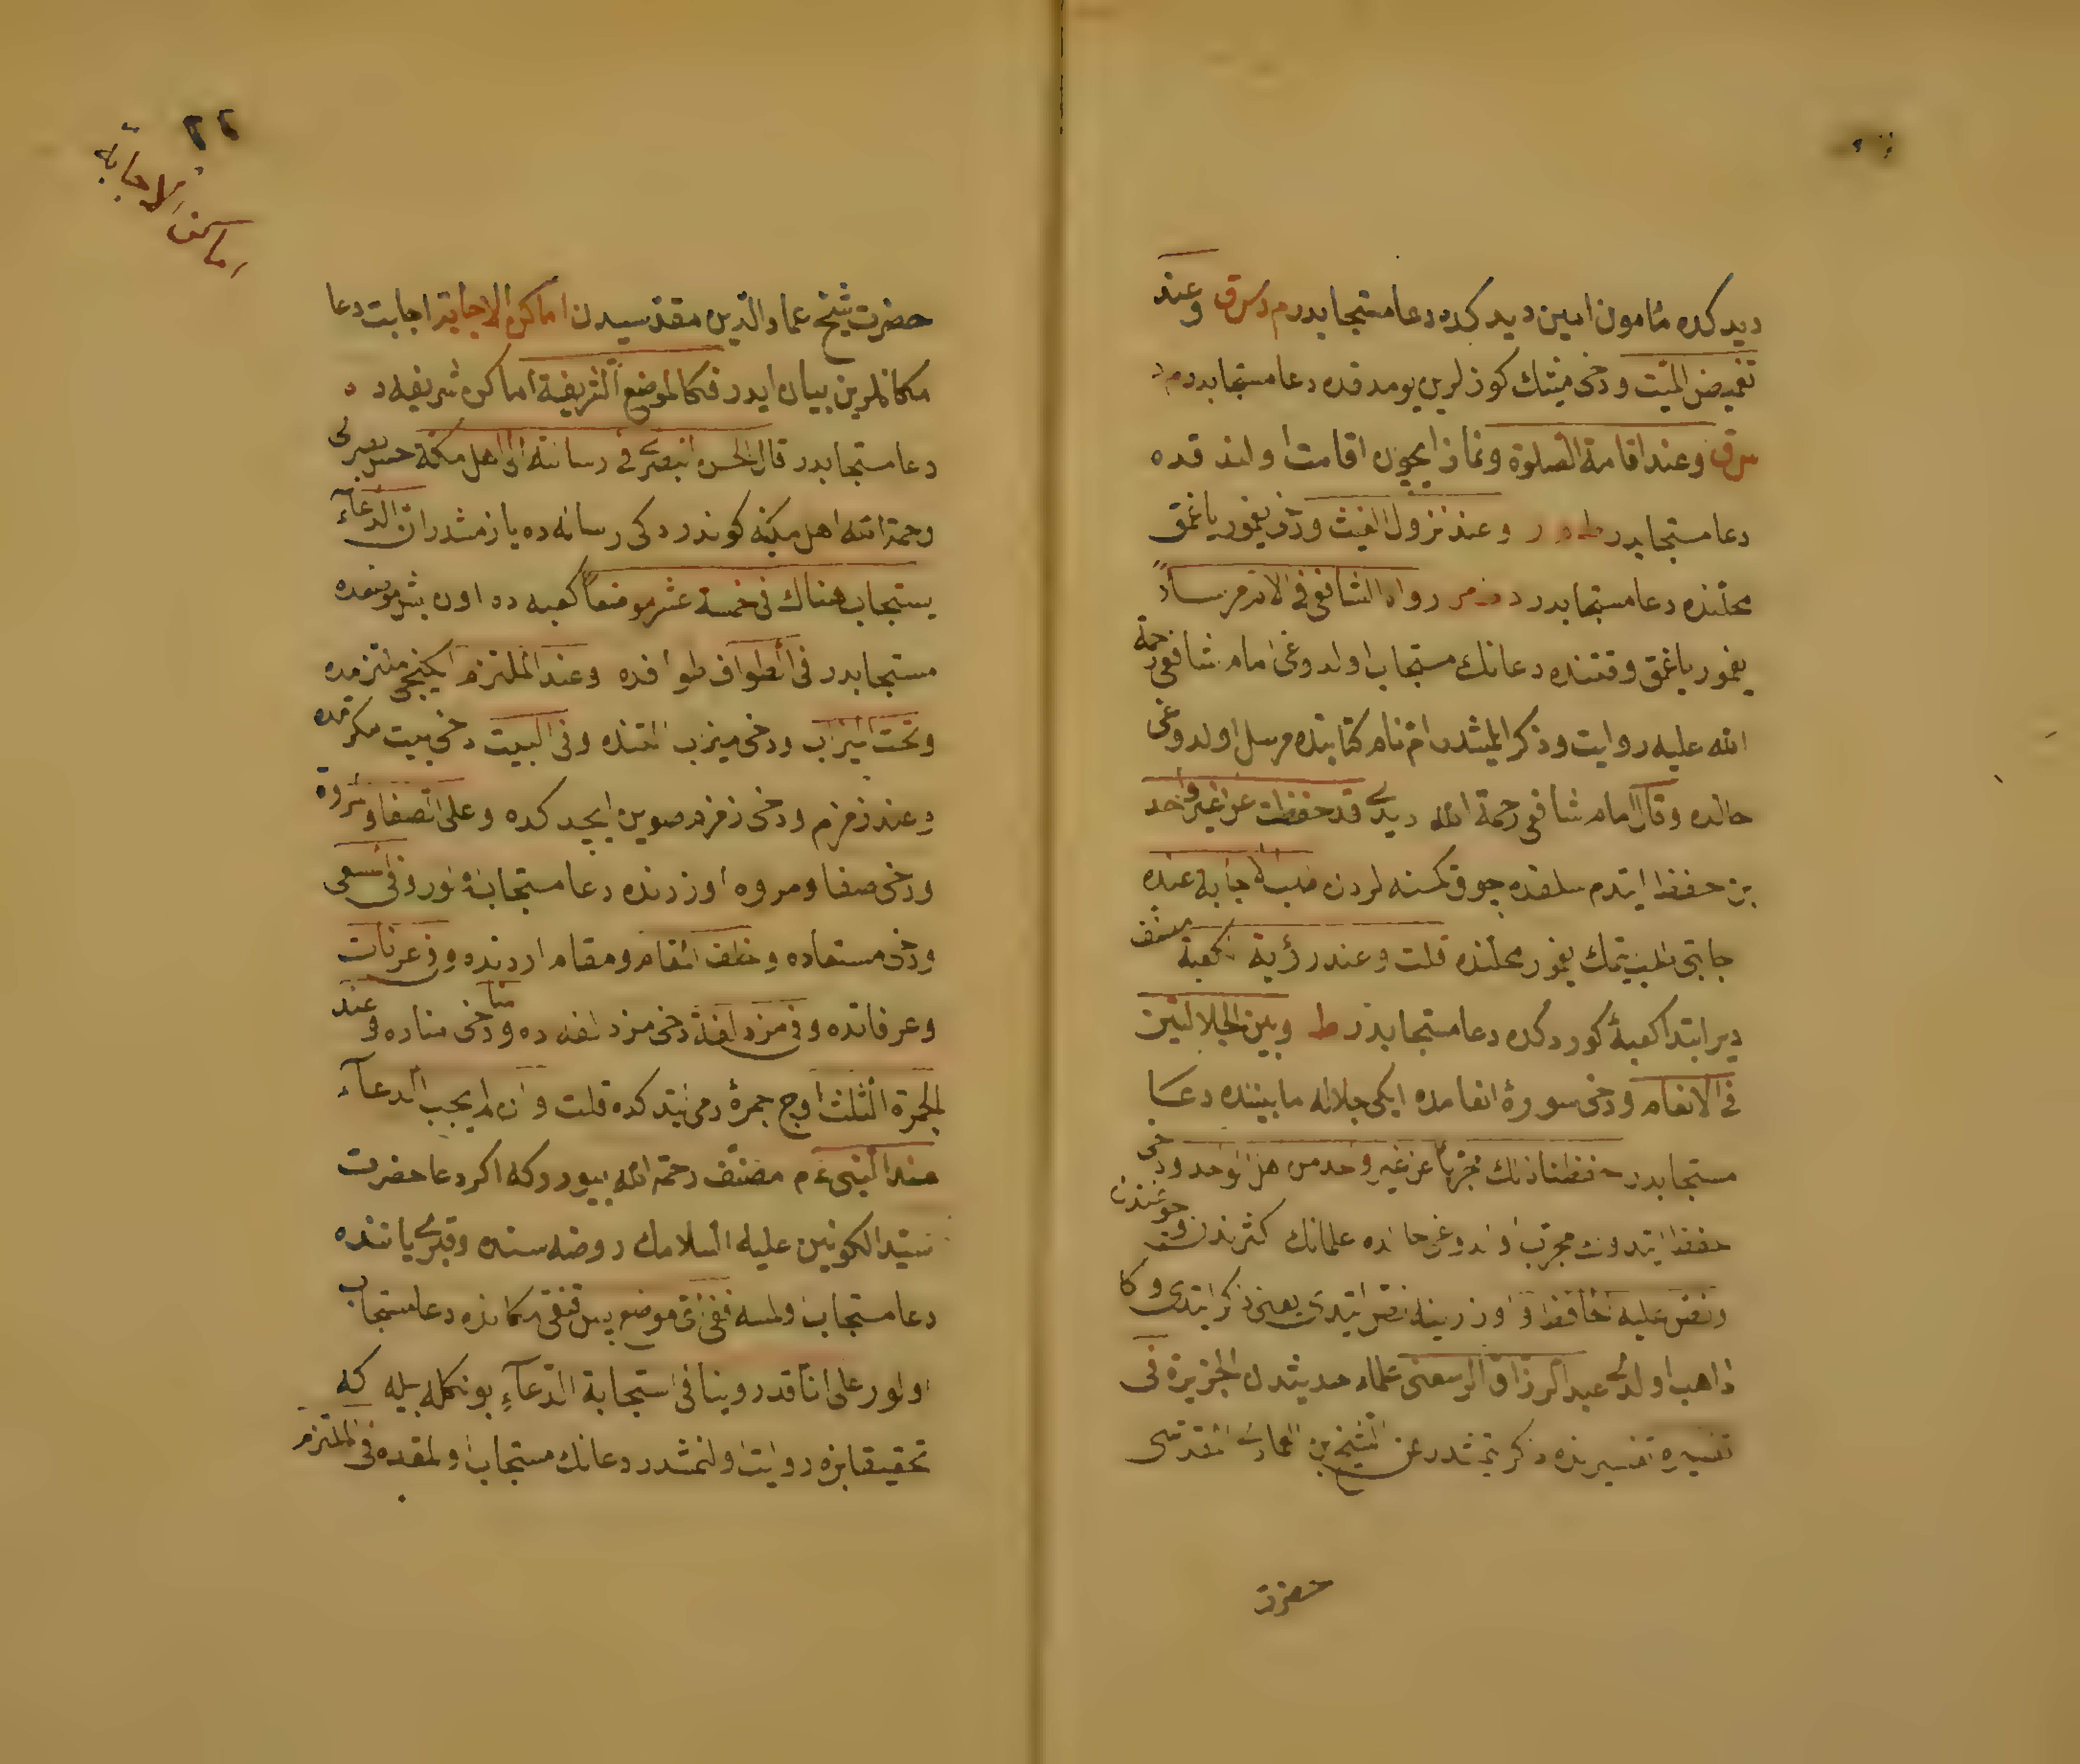 ديدكده مأمون امين ديدكده دعا مستجابدر م د س ق وعند
تغميض الميت ودخى ميتك كوزلرين يومدقده دعا مستجابدر م د
س ق وعند اقامة الصلوة ونماز ايچون اقامت اولندقده
دعا مستجابدر ط د ر وعند نزول الغيث ودخى يغمور ياغمق
محلنده دعا مستجابدر د ط مر رواه الشافعى فى الام مرسلاً
يغمور ياغمق وقتنده دعانك مستجاب اولدوغى امام شافعى رحمة
الله عليه روايت وذكر ايلمشدر ام نام كتابنده مرسل اولدوغى
حالده وقال امام شافعى رحمة الله ديدى قد حفظت عن غير واحد
بن حفظ ايتدم سلفده چوق كمسنه لردن طلب الاجابة عنده
اجابتى طلب ايتمك يغمور محلنده قلت وعند رؤية الكعبة مصنف
دير ابتدا كعبۀ كوردكده دعا مستجابدر ط وبين الجلالتين
فى الانعام ودخى سورۀ انعامده ايكى جلاله مابيننده دعا
مستجابدر حفظنا ذلك مجرباً عن غير واحد من اهل العلم ودخى
حفظ ايتدوك مجرب اولدوغى حالده علمانك كثرتندن وچوغندن
ونص عليه الحافظ واوزرينه نص ايتدى يعنى ذكر ايتدى وكا
ذاهب اولدى عبد الرزاق الرسعنى علماء حديثدن الجزيرة فى
تفسيره تفسيرنده ذكر ايتمشدر عن الشيخ بن العماد المقدسى
حضرت
٢٢
اماكن الاجابة
حضرت شيخ عماد الدين مقدسيدن اماكن الاجابة اجابت دعا
مكانلرين بيان ايدر فكالموضع الشريفة اماكن شريفه ده
دعا مستجابدر قال الحسن البصرى فى رسالته الى اهل مكة حسن بصرى
رحمة الله اهل مكيه كوندردكى رساله ده يازمشدر ان الدعاء
يستجاب هناك فى خمسة عشر موضعاً كعبه ده اون بش موضعده
مستجابدر فى الطواف طوافده وعند الملتزم ايكنجى ملتزمده
وتحت الميزاب ودخى ميزب التنده وفى البيت دخى بيت مكرمده
وعند زمزم ودخى زمزم صوين ايچدكده وعلى الصفا والمروة
ودخى صفا ومروه اوزرنده دعا مستجاب اولور وفى السعى
ودخى مسعاده وخلف المقام ومقام اردنده وفى عرفات
وعرفاتده وفى مزدلفة دخى مزدلفه ده ومنا دخى مناده وعند
الجمرة الثلث اوچ جمرۀ رمى ايتدكده قلت وان لم يجب الدعاء
عند النبى عم مصنف رحمة الله بيورر كه اكر دعا حضرت
سيد الكونين عليه السلامك روضه سنده وقبرى ياننده
دعا مستجاب اولمسه ففى اى موضع پس قنغى مكانده دعا مستجاب
اولور على انا قد روينا فى استجابة الدعاء بونكله بيله كه
تحقيقا بزه روايت اولنمشدر دعانك مستجاب اولمقده فى الملتزم